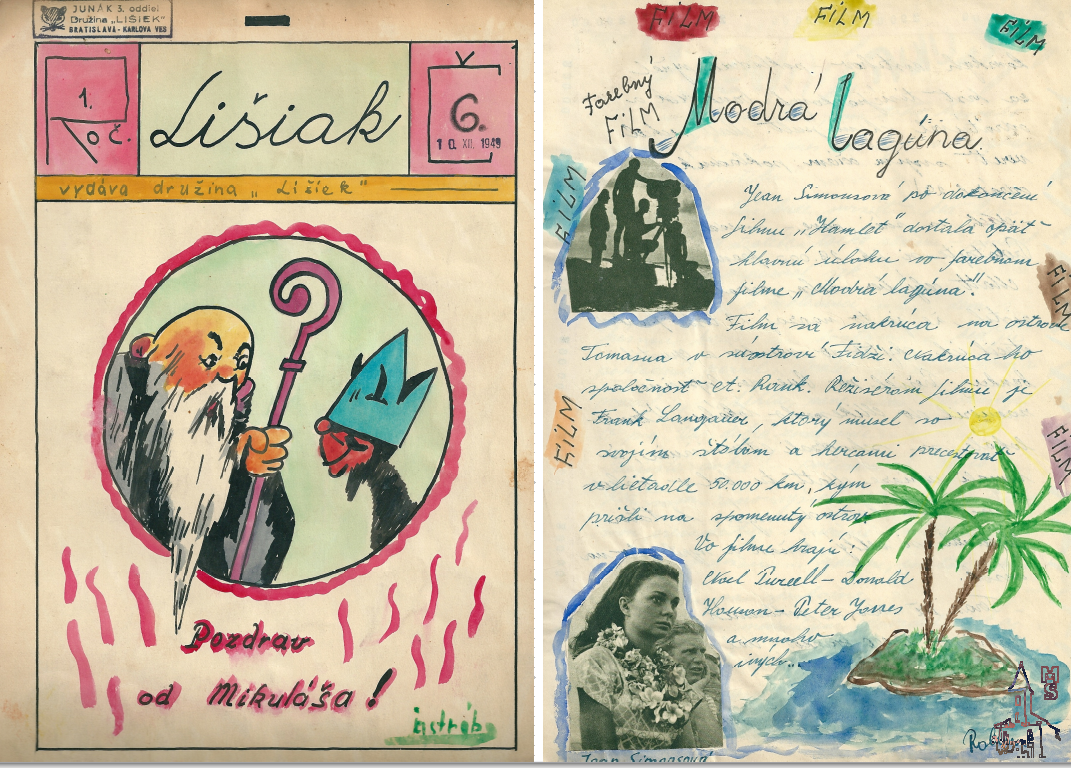 JUNÁK 3. oddiel
Družina „LIŠIEK"
BRATISLAVA - KARLOVA VES
1.
roč.
Lišiak
6.
10. XII. 1949
vydáva družina „Lišiek"
Pozdrav
od Mikuláša!
jastrab
FILM
FILM
FILM
Farebný
FILM
Modrá Lagúna
FILM
FILM
FILM
FILM
Jean Simonsová po dokončení
filmu „Hamlet" dostala opäť
hlavnú úlohu vo farebnom
filme „Modrá lagúna".
Film sa nakrúca na ostrove
v súostroví Fidži. Nakrúca ho
spoločnosť A. Rank. Režisérom filmu je
Frank Laugauer, ktorý musel so
svojím štábom a hercami precestovať
v lietadle 50.000 km, kým
prišli na spomenutý ostrov.
Vo filme hrajú:
Noel Purcell – Donald
Houson – Peter Jones
a mnoho
iných...
Jean Simonsová
MS